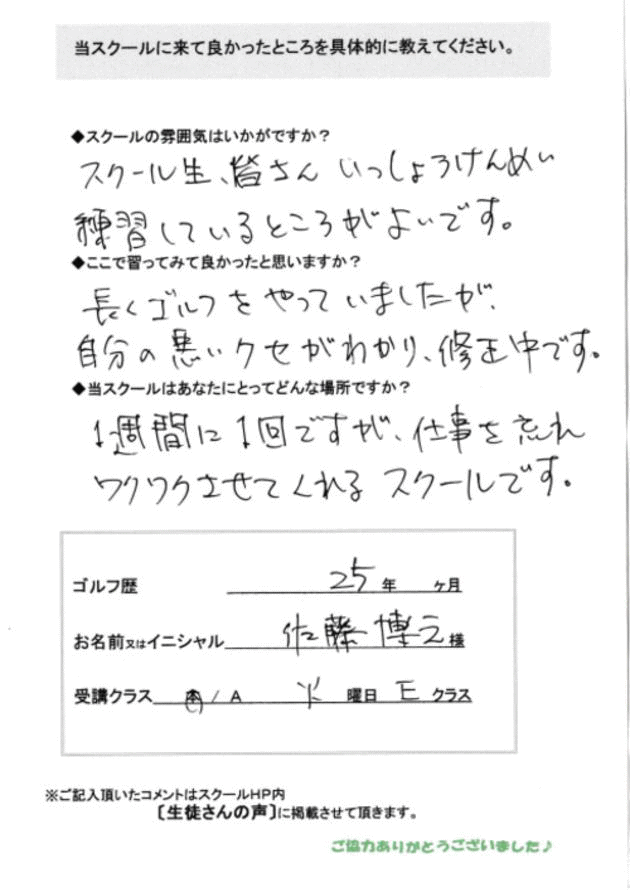 当スクールに来て良かったところを具体的に教えてください。
◆スクールの雰囲気はいかがですか？
スクール生、皆さん いっしょうけんめい
練習しているところがよいです。
◆ここで習ってみて良かったと思いますか？
長くゴルフをやっていましたが、
自分の悪いクセがわかり、修正中です。
◆当スクールはあなたにとってどんな場所ですか？
1週間に1回ですが、仕事を忘れ
ワクワクさせてくれる スクールです。
ゴルフ歴 25 年 ヶ月
お名前又はイニシャル 佐藤 博之 様
受講クラス 本 / A 火 曜日 E クラス
※ご記入頂いたコメントはスクールHP内
［生徒さんの声］に掲載させて頂きます。
ご協力ありがとうございました♪